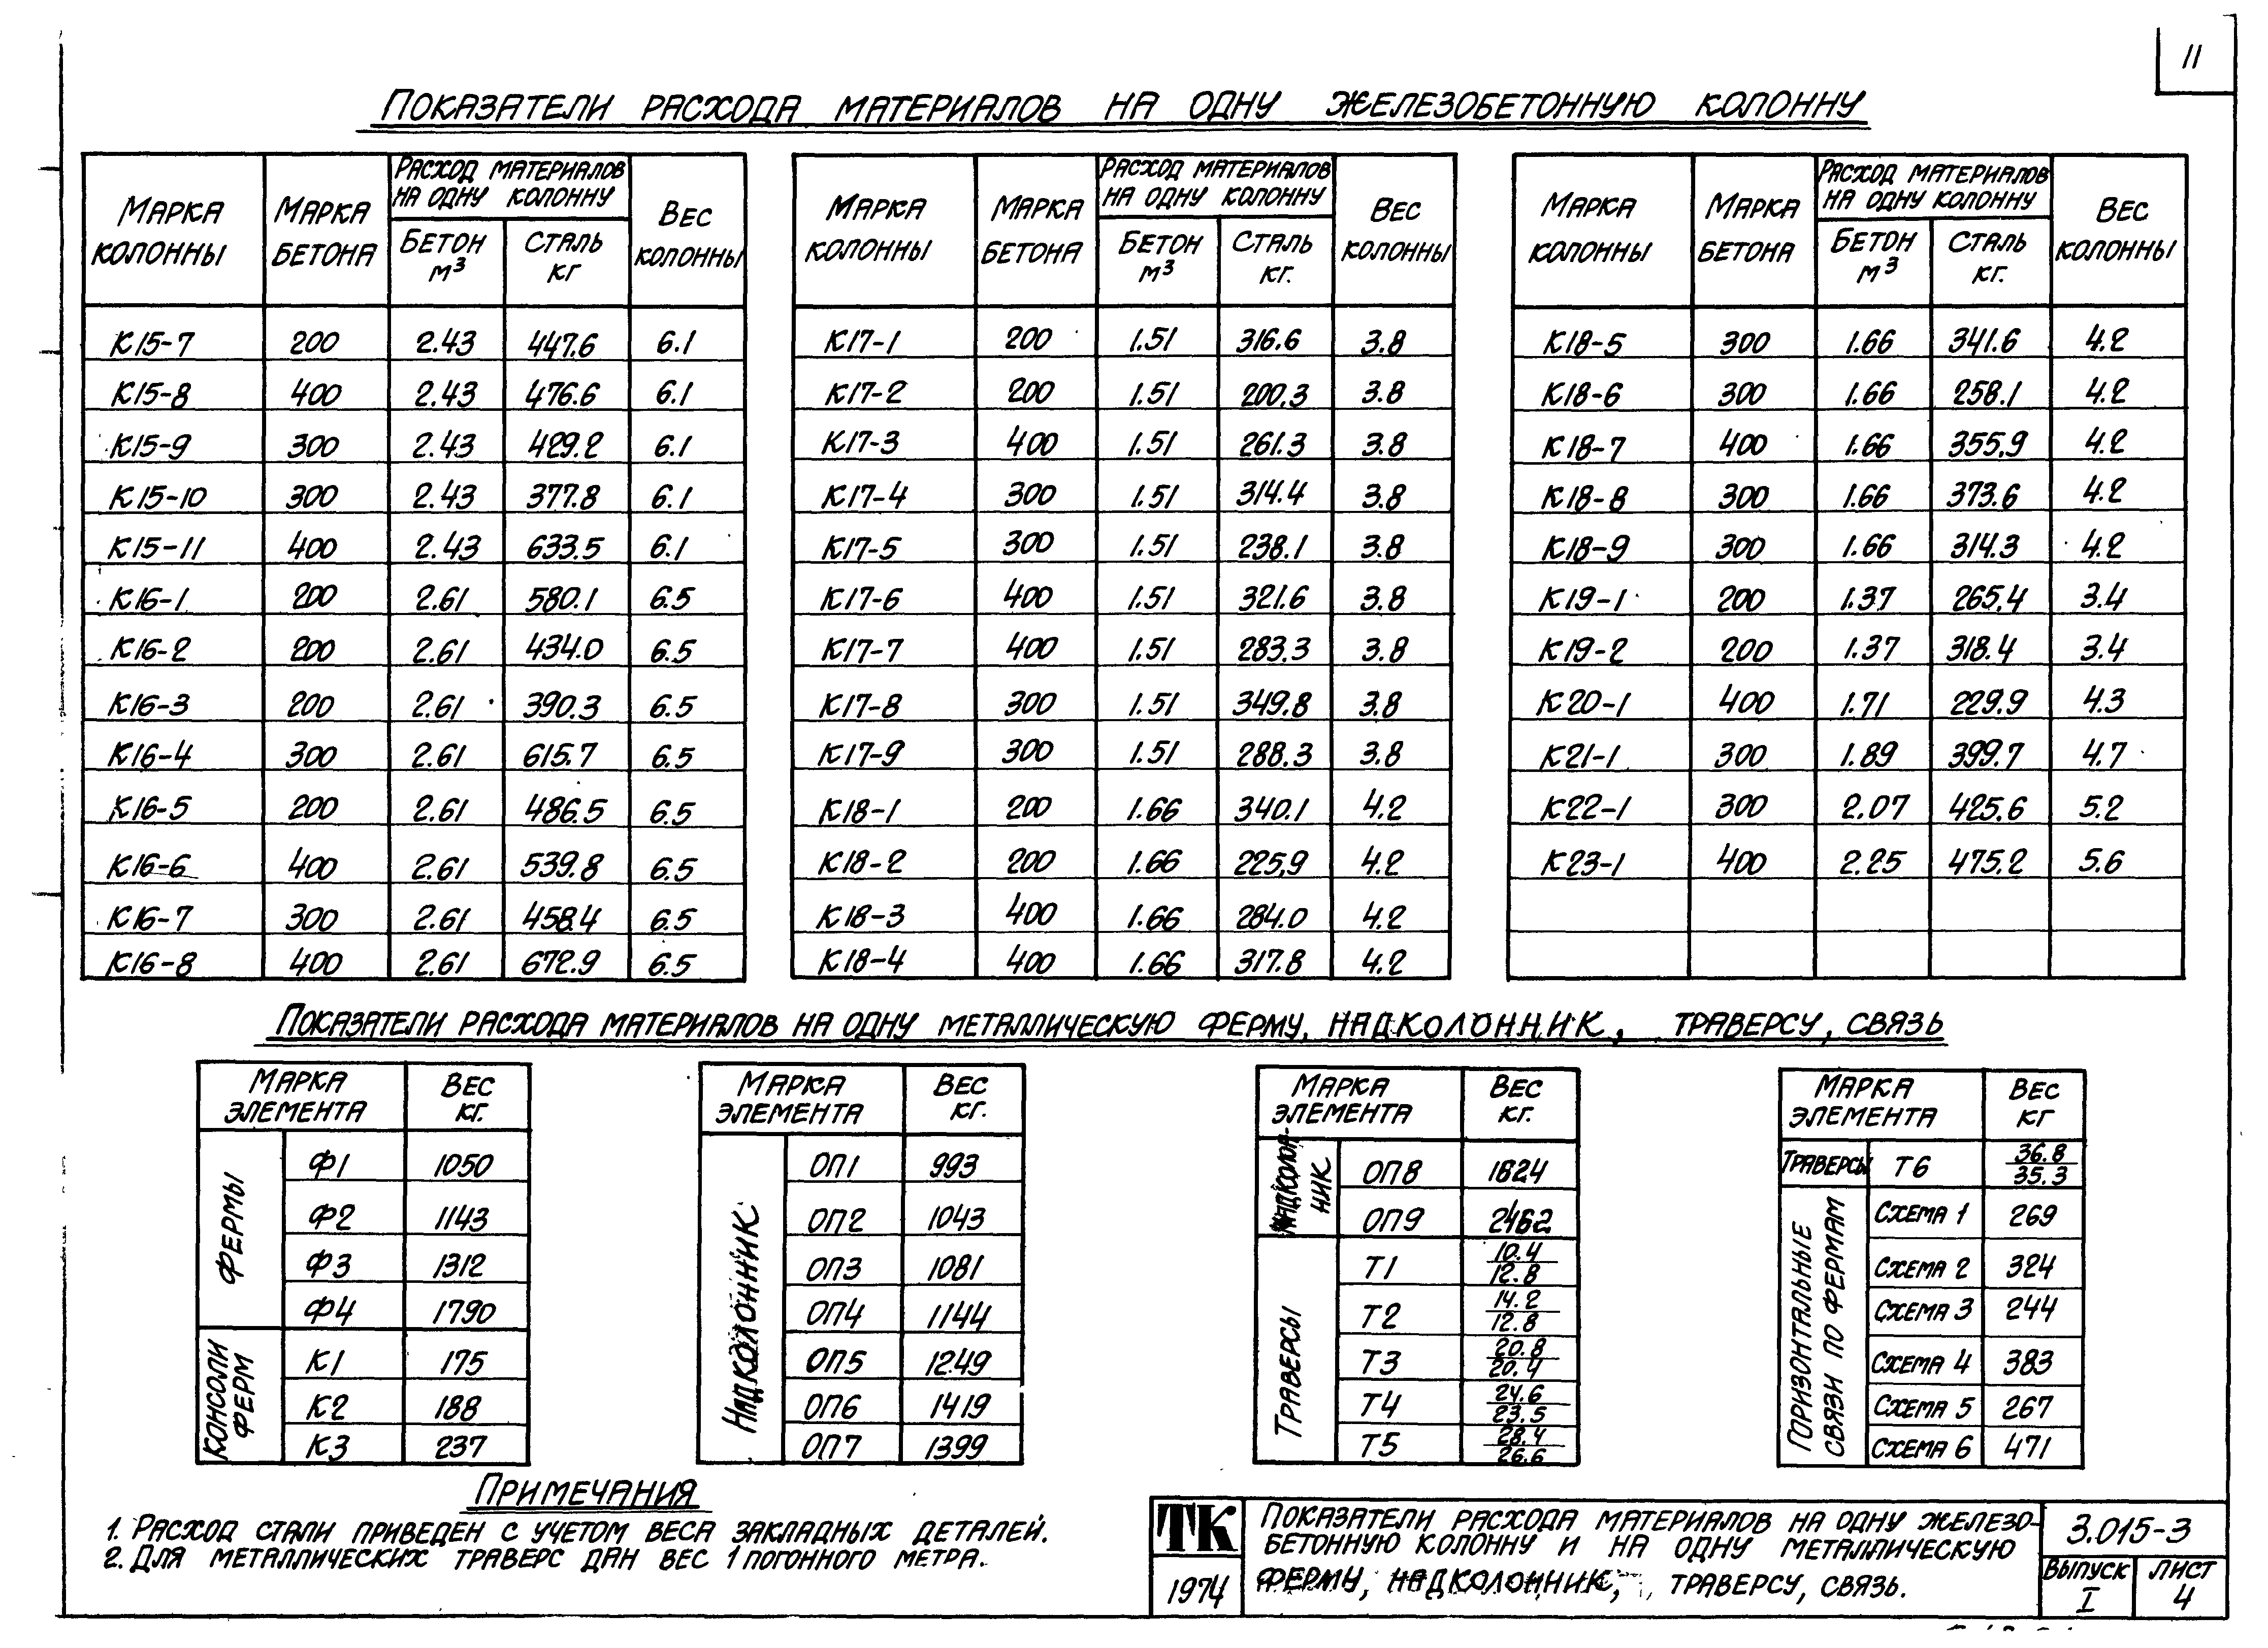 11
Показатели расхода материалов на одну железобетонную колонну
Марка колонны | Марка бетона | Расход материалов на одну колонну | Вес колонны
Бетон м³ | Сталь кг
К15-7 200 2.43 447.6 6.1
К15-8 400 2.43 476.6 6.1
К15-9 300 2.43 429.2 6.1
К15-10 300 2.43 377.8 6.1
К15-11 400 2.43 633.5 6.1
К16-1 200 2.61 580.1 6.5
К16-2 200 2.61 434.0 6.5
К16-3 200 2.61 390.3 6.5
К16-4 300 2.61 615.7 6.5
К16-5 200 2.61 486.5 6.5
К16-6 400 2.61 539.8 6.5
К16-7 300 2.61 458.4 6.5
К16-8 400 2.61 672.9 6.5
Марка колонны | Марка бетона | Расход материалов на одну колонну | Вес колонны
Бетон м³ | Сталь кг.
К17-1 200 1.51 316.6 3.8
К17-2 200 1.51 200.3 3.8
К17-3 400 1.51 261.3 3.8
К17-4 300 1.51 314.4 3.8
К17-5 300 1.51 238.1 3.8
К17-6 400 1.51 321.6 3.8
К17-7 400 1.51 283.3 3.8
К17-8 300 1.51 349.8 3.8
К17-9 300 1.51 288.3 3.8
К18-1 200 1.66 340.1 4.2
К18-2 200 1.66 225,9 4.2
К18-3 400 1.66 284.0 4.2
К18-4 400 1.66 317.8 4.2
Марка колонны | Марка бетона | Расход материалов на одну колонну | Вес колонны
Бетон м³ | Сталь кг.
К18-5 300 1.66 341.6 4.2
К18-6 300 1.66 258.1 4.2
К18-7 400 1.66 355,9 4.2
К18-8 300 1.66 373.6 4.2
К18-9 300 1.66 314.3 4.2
К19-1 200 1.37 265,4 3.4
К19-2 200 1.37 318.4 3.4
К20-1 400 1.71 229.9 4.3
К21-1 300 1.89 399.7 4.7
К22-1 300 2.07 425.6 5.2
К23-1 400 2.25 475.2 5.6
Показатели расхода материалов на одну металлическую ферму, надколонник, траверсу, связь
Марка элемента | Вес кг.
Фермы
Ф1 1050
Ф2 1143
Ф3 1312
Ф4 1790
Консоли ферм
К1 175
К2 188
К3 237
Марка элемента | Вес кг.
Надколонник
ОП1 993
ОП2 1043
ОП3 1081
ОП4 1144
ОП5 1249
ОП6 1419
ОП7 1399
Марка элемента | Вес кг.
Надколон-
ник
ОП8 1824
ОП9 2462
Траверсы
Т1 10.4/12.8
Т2 14.2/12.8
Т3 20.8/20.4
Т4 24.6/23.5
Т5 28.4/26.6
Марка элемента | Вес кг
Траверсы Т6 36.8/35.3
Горизонтальные связи по фермам
Схема 1 269
Схема 2 324
Схема 3 244
Схема 4 383
Схема 5 267
Схема 6 471
Примечания
1. Расход стали приведен с учетом веса закладных деталей.
2. Для металлических траверс дан вес 1 погонного метра.
ТК
1974
Показатели расхода материалов на одну железо-
бетонную колонну и на одну металлическую
ферму, надколонник, траверсу, связь.
3.015-3
Выпуск I
Лист 4